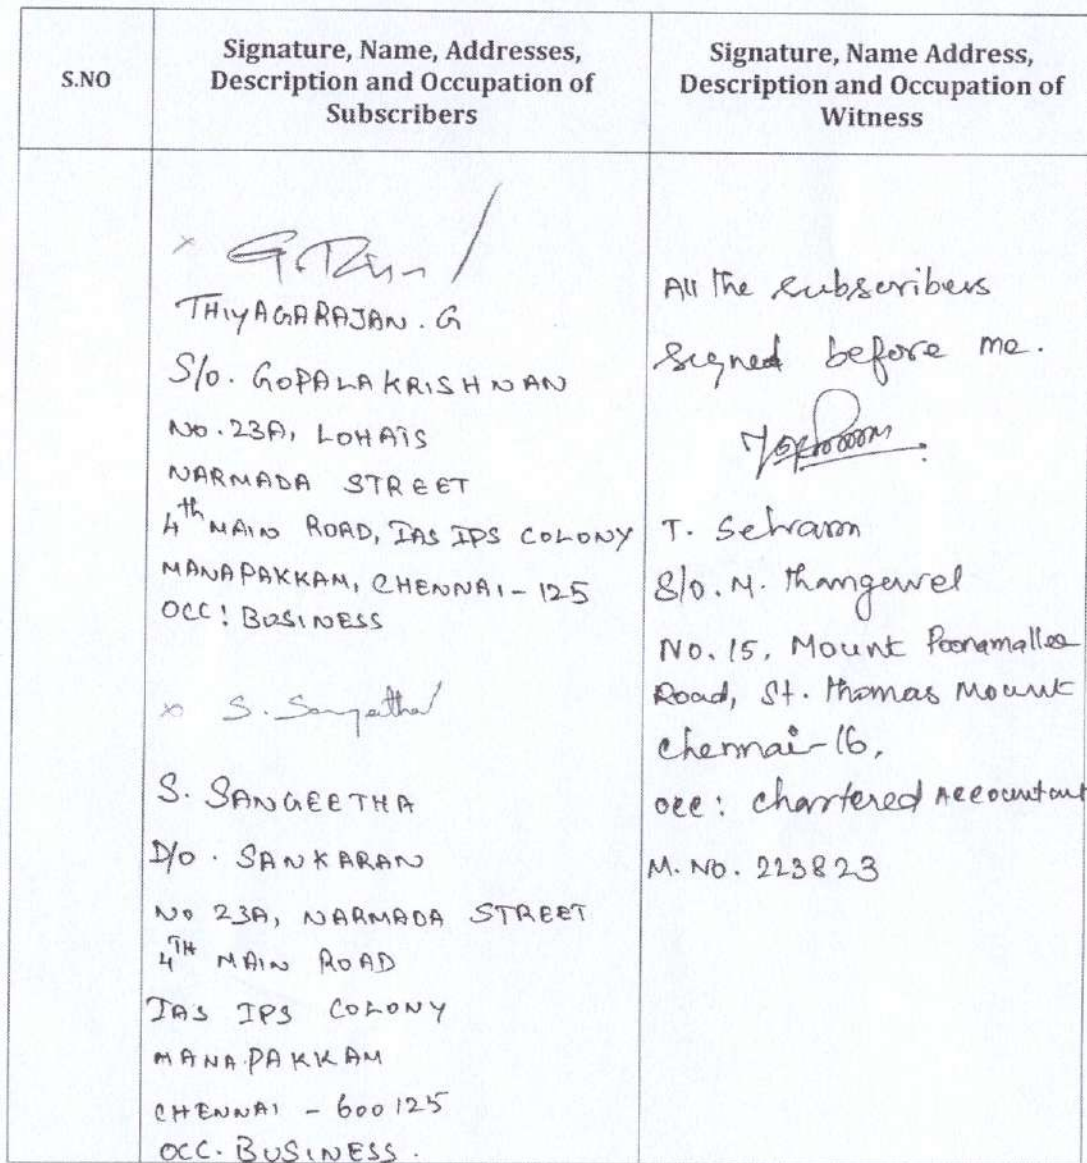 S.NO
Signature, Name, Addresses,
Description and Occupation of
Subscribers
Signature, Name Address,
Description and Occupation of
Witness
THIYAGARAJAN. G
S/o. GOPALAKRISHNAN
No. 23A, LOHAIS
NARMADA STREET
4th MAIN ROAD, IAS IPS COLONY
MANAPAKKAM, CHENNAI - 125
OCC: BUSINESS
x S. Sangeetha
S. SANGEETHA
D/o. SANKARAN
No 23A, NARMADA STREET
4TH MAIN ROAD
IAS IPS COLONY
MANAPAKKAM
CHENNAI - 600125
OCC. BUSINESS.
All the subscribers
signed before me.
T. Selvaram
S/o. M. Thangavel
No. 15, Mount Poonamallee
Road, St. Thomas Mount
Chennai-16,
occ: Chartered Accountant
M. No. 223823